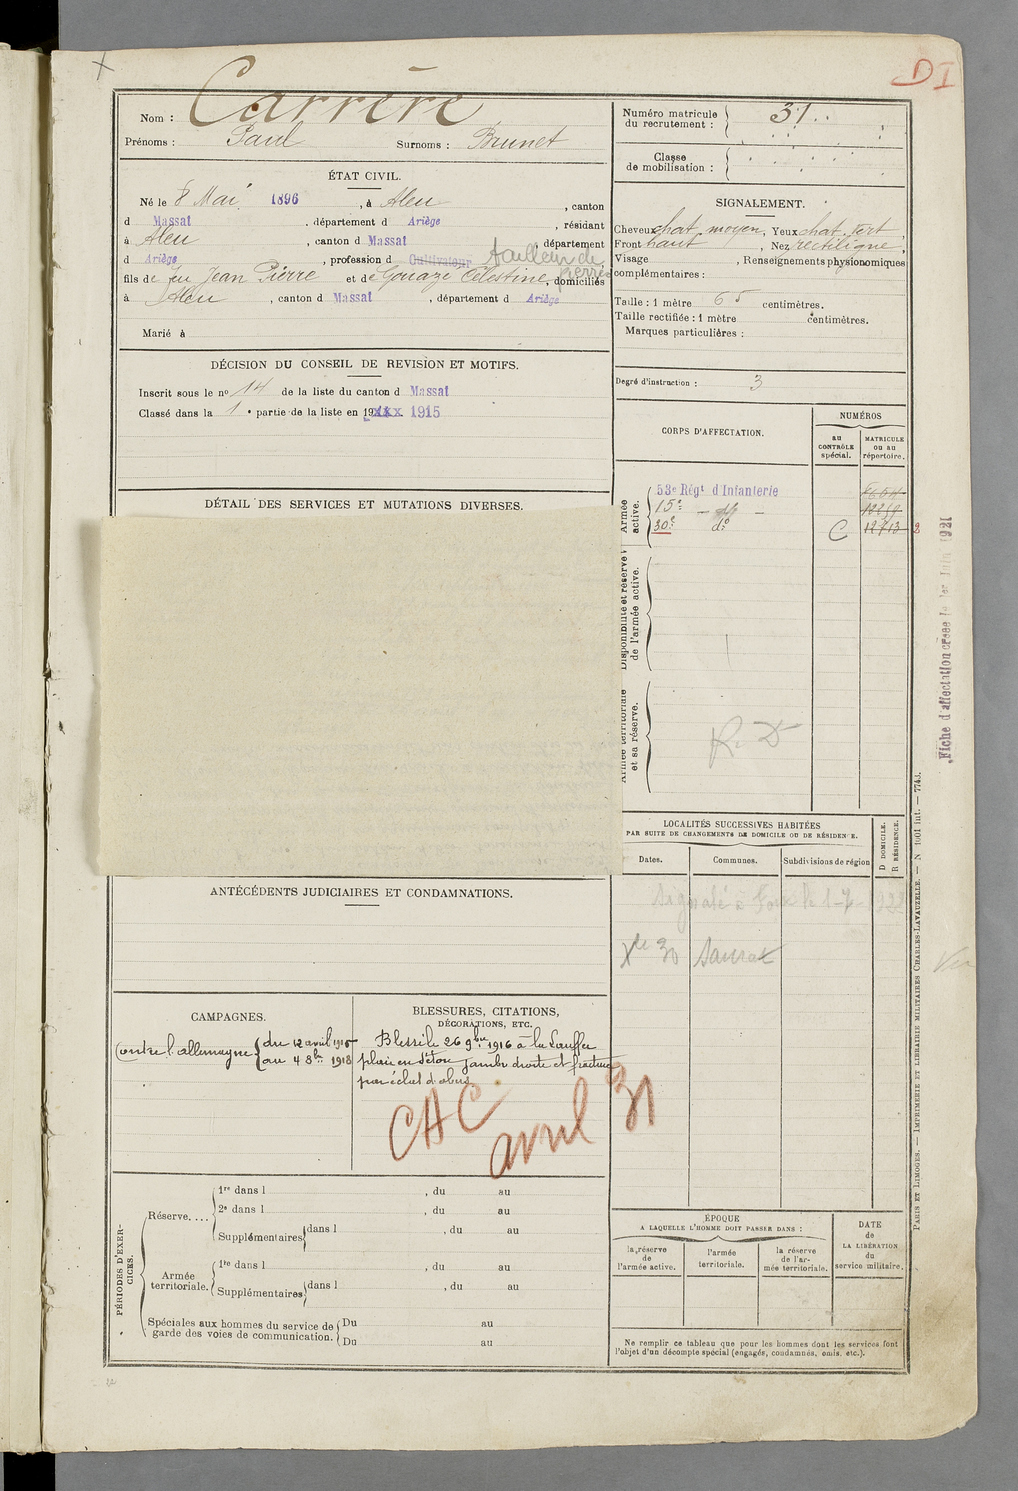 D I
Nom : Carrère
Prénoms : Paul Surnoms : Brunet
ÉTAT CIVIL.
Né le 8 Mai 1896, à Aleu, canton
d Massat, département d Ariège, résidant
à Aleu, canton d Massat, département
d Ariège, profession d Cultivateur tailleur de pierres
fils de feu Jean Pierre et de Gouaze Célestine, domiciliés
à Aleu, canton d Massat, département d Ariège
Marié à
DÉCISION DU CONSEIL DE REVISION ET MOTIFS.
Inscrit sous le no 14 de la liste du canton d Massat
Classé dans la 1e partie de la liste en 19 xxx 1915
DÉTAIL DES SERVICES ET MUTATIONS DIVERSES.
ANTÉCÉDENTS JUDICIAIRES ET CONDAMNATIONS.
CAMPAGNES.
Contre l'allemagne { du 12 avril 1915
au 4 8bre 1918
BLESSURES, CITATIONS,
DÉCORATIONS, ETC.
Blessé le 26 9bre 1916 à
plaie en séton jambe droite et fracture
par éclat d'obus
CAC
avril 31
PÉRIODES D'EXERCICES.
Réserve....
1re dans l , du au
2e dans l , du au
Supplémentaires dans l , du au
Armée territoriale.
1re dans l , du au
Supplémentaires dans l , du au
Spéciales aux hommes du service de
garde des voies de communication.
Du au
Du au
Numéro matricule
du recrutement : 31
Classe
de mobilisation :
SIGNALEMENT.
Cheveux chat. moyen, Yeux chat. fort,
Front haut, Nez rectiligne,
Visage , Renseignements physionomiques
complémentaires :
Taille : 1 mètre 65 centimètres.
Taille rectifiée : 1 mètre centimètres.
Marques particulières :
Degré d'instruction : 3
CORPS D'AFFECTATION.
NUMÉROS
au
CONTRÔLE
spécial.
MATRICULE
ou au
répertoire.
Armée
active.
53e Régt d'Infanterie
15e - do -
30e do C 12713
Disponibilité et réserve
de l'armée active.
Armée territoriale
et sa réserve.
R. D
LOCALITÉS SUCCESSIVES HABITÉES
PAR SUITE DE CHANGEMENTS DE DOMICILE OU DE RÉSIDENCE.
Dates. Communes. Subdivisions de région
D DOMICILE.
R RÉSIDENCE.
Signalé à Foix le 1-7-
Xbre 30 Saurat
ÉPOQUE
A LAQUELLE L'HOMME DOIT PASSER DANS :
la réserve
de
l'armée active.
l'armée
territoriale.
la réserve
de l'ar-
mée territoriale.
DATE
de
LA LIBÉRATION
du
service militaire.
Ne remplir ce tableau que pour les hommes dont les services font
l'objet d'un décompte spécial (engagés, condamnés, omis, etc.).
Fiche d'affectation créée le 1er Juin 1921
PARIS ET LIMOGES. — IMPRIMERIE ET LIBRAIRIE MILITAIRES CHARLES-LAVAUZELLE. — N 1001 int. — 7740.